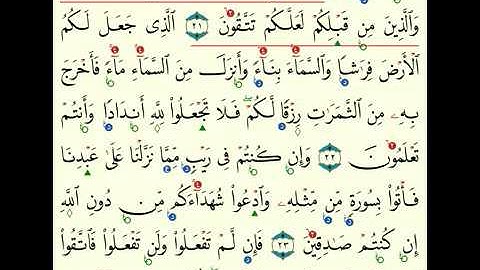 وَٱلَّذِينَ مِن قَبۡلِكُمۡ لَعَلَّكُمۡ تَتَّقُونَ ٢١ ٱلَّذِي جَعَلَ لَكُمُ
ٱلۡأَرۡضَ فِرَٰشٗا وَٱلسَّمَآءَ بِنَآءٗ وَأَنزَلَ مِنَ ٱلسَّمَآءِ مَآءٗ فَأَخۡرَجَ
بِهِۦ مِنَ ٱلثَّمَرَٰتِ رِزۡقٗا لَّكُمۡۖ فَلَا تَجۡعَلُواْ لِلَّهِ أَندَادٗا وَأَنتُمۡ
تَعۡلَمُونَ ٢٢ وَإِن كُنتُمۡ فِي رَيۡبٖ مِّمَّا نَزَّلۡنَا عَلَىٰ عَبۡدِنَا
فَأۡتُواْ بِسُورَةٖ مِّن مِّثۡلِهِۦ وَٱدۡعُواْ شُهَدَآءَكُم مِّن دُونِ ٱللَّهِ
إِن كُنتُمۡ صَٰدِقِينَ ٢٣ فَإِن لَّمۡ تَفۡعَلُواْ وَلَن تَفۡعَلُواْ فَٱتَّقُواْ